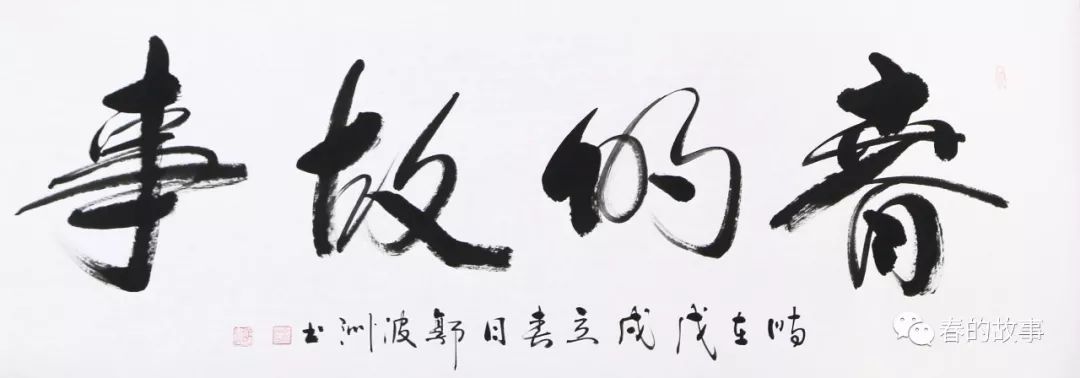 春的故事
时在戊戌立春日鄭波洲书
春的故事